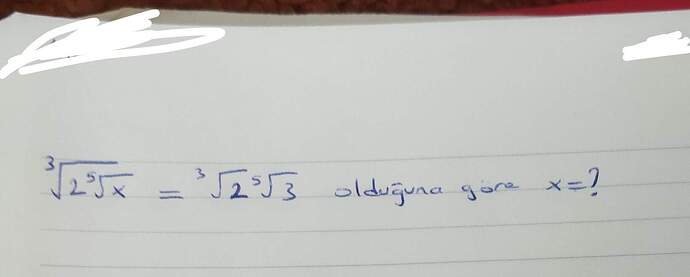 ³√(2⁵√x) = ³√2 ⁵√3 olduğuna göre x=?